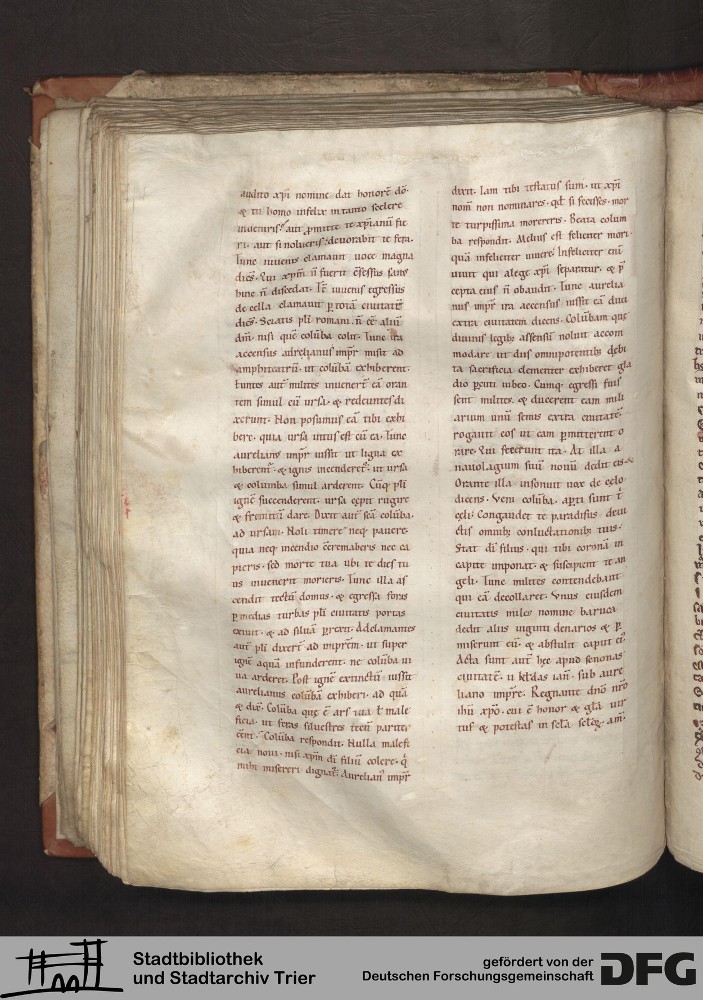 audito xpi nomine dat honorē dō·
& tu homo infelix in tanto scelere
inueniris· aut ꝓmitte te xp̄ianū fie
ri· aut si nolueris· deuorabit te fera·
Tunc iuuenis clamauit uoce magna
dicēs· Qui xp̄m n̄ fuerit cōfessus sanus
hinc n̄ discedat· Et iuuenis egressus
de cella clamauit ꝑ totā ciuitatē
dicēs· Sciatis pl̄i romani· n̄ eē aliū
dm̄· nisi quē colūba colit· Tunc ira
accensus aurelianus imp̄r misit ad
amphiteatrū· ut colūbā exhiberent·
Euntes aut̄ milites inuenerт̄ eā oran
tem simul cū ursa· & redeuntes di
xerunt· Non possumus eā tibi exhi
bere· quia ursa intus est cū ea· Tunc
aurelianus imp̄r iussit ut ligna ex
hiberent̄· & ignis incenderet̄· ut ursa
& columba simul arderent· Cūq; pl̄i
ignē succenderent· ursa cepit rugire
& fremitū dare· Dixit aut̄ scā colūba·
ad ursam· Noli timere neq; pauere·
quia neq; incendio cremaberis nec ca
pieris· sed morte tua ubi te dies tu
us inuenerit morieris· Tunc illa as
cendit tectū domus· & egressa foris
ꝑ medias turbas pl̄i ciuitatis portas
exiuit· & ad siluā ꝑrexit· Adclamantes
aut̄ pl̄i dixerт̄ ad imp̄rem· ut super
ignē aquā infunderent· ne colūba ui
ua arderet· Post ignē extinctū iussit
aurelianus colūbā exhiberi· ad quā
& dix̄· Colūba quę ē ars tua t̄ male
ficia· ut feras siluestres tecū parite
cēnt· Colūba respondit· Nulla malefi
cia noui· nisi xp̄m dī filiū colere· q̄
mihi misereri dignat̄· Aurelian' imp̄r
dixit· Iam tibi testatus sum· ut xp̄i
nom̄ non nominares· qd̄ si fecisses· mor
te turpissima morereris· Beata colum
ba respondit· Melius est feliciter mori·
quā infeliciter uiuere· Infeliciter enī
uiuit qui a lege xp̄i separatur· & p̄
cepta eius n̄ obaudit· Tunc aurelia
nus imp̄r ira accensus iussit eā duci
extra ciuitatem dicens· Colūbam quę
diuinis legib; assensū noluit accom
modare ut diis omnipotentib; debi
ta sacrificia clementer exhiberet gla
dio ꝑcuti iubeo· Cumq; egressi fuis
sent milites· & ducerent eam mili
arium unū semis extra ciuitatē·
rogauit eos ut eam ꝑmitterent o
rare· Qui fecerunt ita· At illa a
nauolagium suū nouū dedit eis·
Orante illa insonuit uox de cęlo
dicens· Veni colūba· aꝑti sunt t̄
cęli· Congaudet te paradisus· delu
ctis omnib; conluctationib; tuis·
Stat dī filius· qui tibi coronā in
capite inponat· & suscipient te an
geli· Tunc milites contendebant
qui eā decollaret· Vnus eiusdem
ciuitatis miles nomine baruca
dedit aliis uiginti denarios & ꝑ
miserunt eū· & abstulit caput ei'·
Acta sunt aut̄ hęc apud senonas
ciuitatē· ii kl̄das ian̄· sub aure
liano impr̄e· Regnante dn̄o nr̄o
ihū xp̄o· cui ē honor & gl̄a uir
tus & potestas in scl̄a scl̄oꝝ· am̄·
Stadtbibliothek
und Stadtarchiv Trier
gefördert von der
Deutschen Forschungsgemeinschaft
DFG